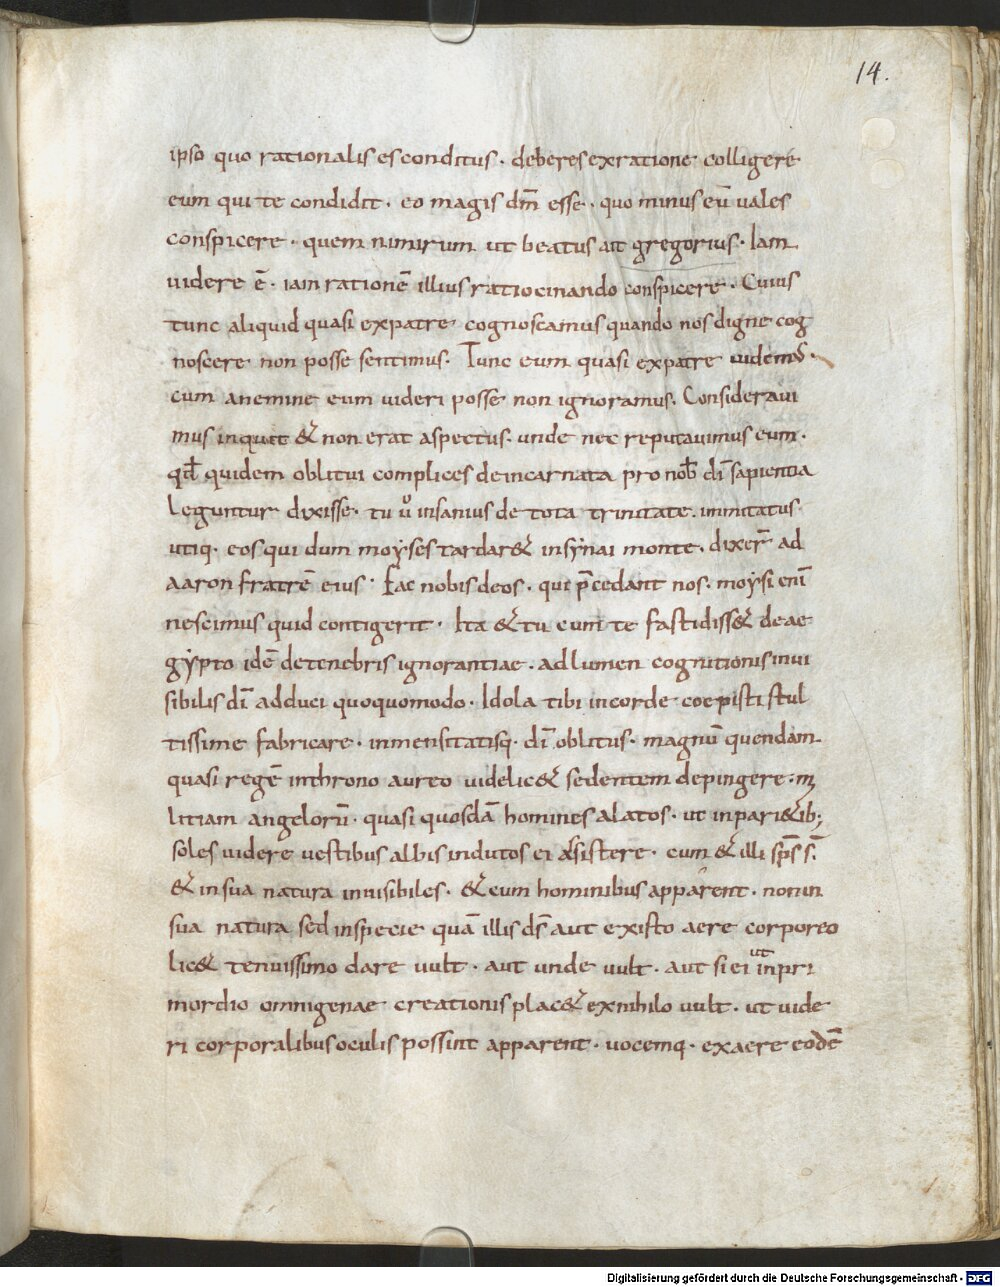 14.
ipso quo rationalis es conditus · deberes ex ratione colligere
eum qui te condidit · eo magis dm̄ esse · quo minus eū uales
conspicere · quem nimirum ut beatus ait gregorius · Iam
uidere ē · iam rationē illius ratiocinando conspicere · Cuius
tunc aliquid quasi ex patre cognoscamus quando nos digne cog
noscere non posse sentimus · Tunc eum quasi ex patre uidemus ·
cum a nemine eum uideri posse non ignoramus · Considerauı
mus inquit & non erat aspectus · unde nec reputauimus eum ·
qd̄ quidem oblitui complices de incarnata pro nob̄ dī sapientia
leguntur dixisse · tu ů insanius de tota trinitate · immitatus
utiq · eos qui dum moẏses tardar& in sẏnai monte · dixer̄ ad
aaron fratrē eius · Fac nobis deos · qui p̄cedant nos · moẏsi enī
nescimus quid contigerit · Ita & tu cum te fastidiss& de ae
gẏpto idē de tenebris ignorantiae · ad lumen cognitionis inui
sibilis dī adduci quoquomodo · Idola tibi in corde coepisti stul
tissime fabricare · inmensitatisq · dī oblitus · magnū quendam
quasi regē in throno aureo uidelic& sedentem depingere · mı
litiam angelorū · quasi quosdā homines alatos · ut in pari&ib;
soles uidere uestibus albis indutos ei assistere · cum & illi sp̄s s̄
& in sua natura inuisibiles · & cum hominibus apparent · non in
sua natura sed in specie quā illis ds̄ aut ex isto aere corporeo
lic& tenuissimo dare uult · aut unde uult · aut si ei ut in pri
mordio omnigenae creationis plac& ex nihilo uult · ut uide
ri corporalibus oculis possint apparent · uocemq · ex aere eodē
Digitalisierung gefördert durch die Deutsche Forschungsgemeinschaft - DFG